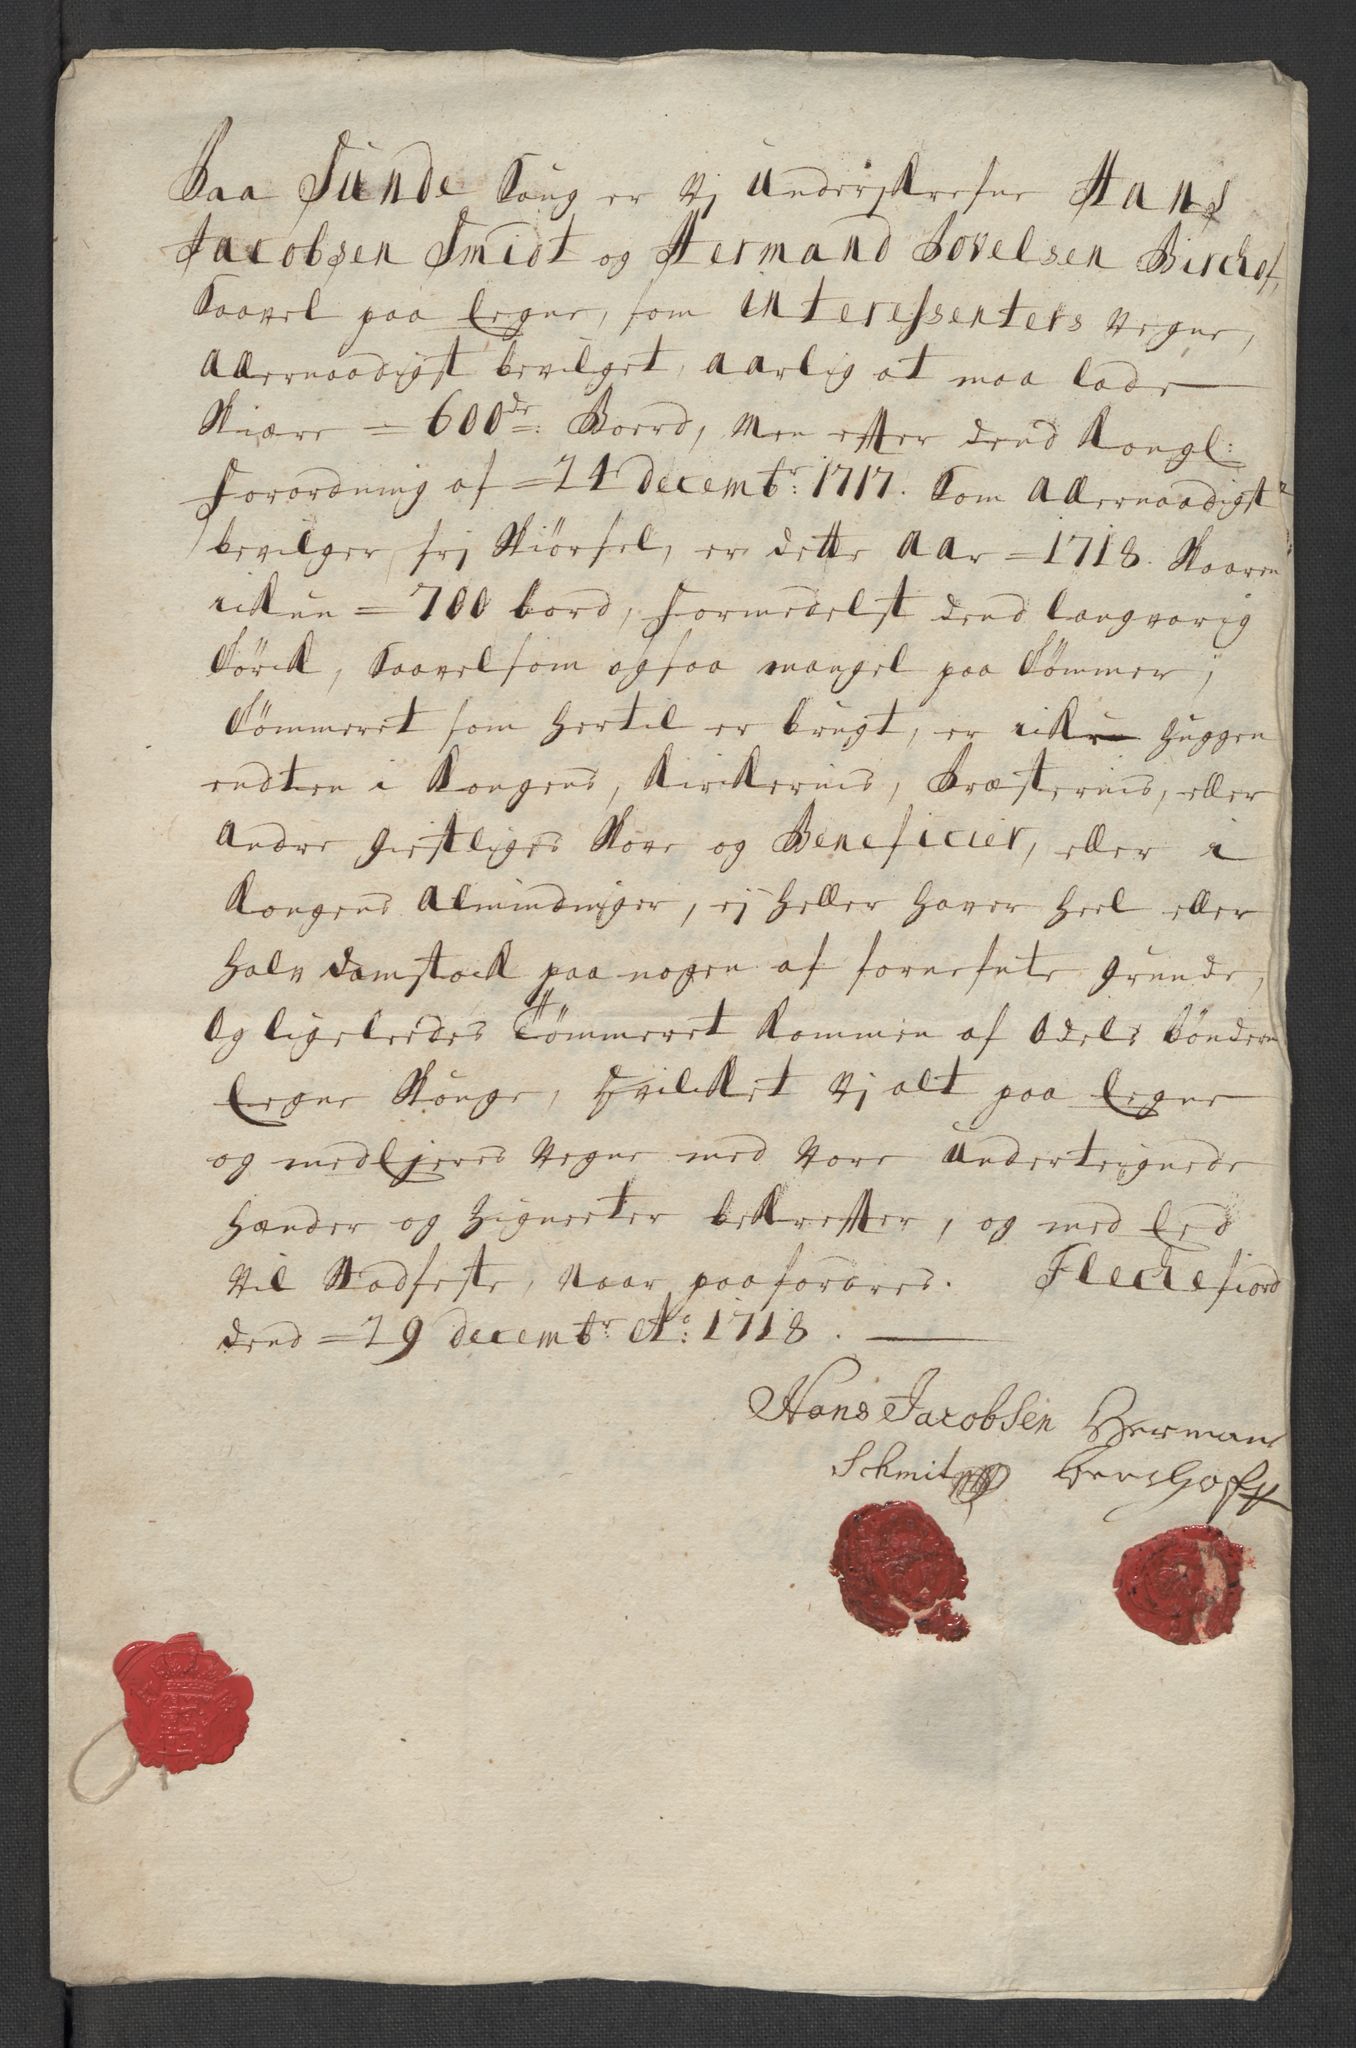 Paa Sunde Saug er vj underskrefne Hans
Jacobsen Smidt og Hermand Povelsen Birchof,
saavel paa Eegne, som interessenters vegne,
allernaadigst bevilget, aarlig at maa lade
skiære = 600de: Boerd, men efter dend Kongl:
Forordning af = 24 decembr: 1717. som allernaadigst
bevilger frj skiörsel, er dette aar = 1718. skaaren
ickun = 700 bord, formedelst dend langvarig
Törck, saavelsom ogsaa mangel paa Tömmer;
Tömmeret som hertil er brugt, er icke huggen
endten i Kongens, Kirckernis, Præsternis, eller
andre giestliges skove og Beneficier, eller i
Kongens Almindinger, ej heller haver heel eller
halv damstock paa nogen af fornefnte grunde,
og ligeleedes Tömmeret kommen af Odels bönderne
Eegne skouge, hvilcket vj alt paa Eegne
og medEjeres vegne med vore underteignede
hænder og Zigneeter bekrefter, og med Eed
vil stadfeste, naar paafordres. Flechefiord
dend = 29 decembr Ao: 1718.
Hans Jacobsen Herman
Schmit Berchoff